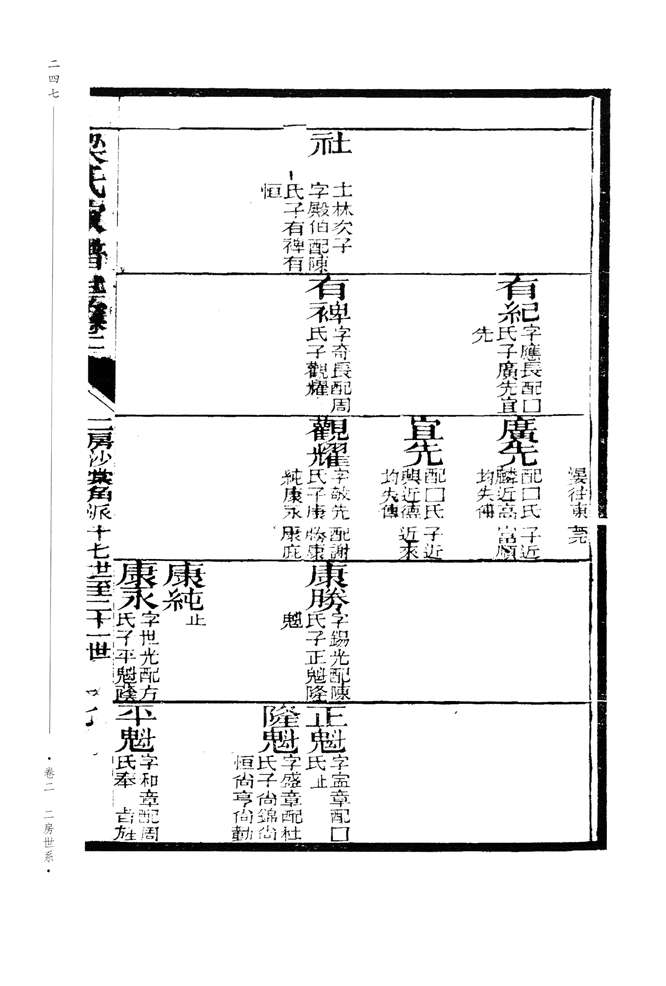 二四七
卷二 二房世系
梁氏家譜
二房沙棠角派十七世至二十一世
社
士林次子
字殿伯配陳
氏子有裨有
恒
有紀
字應長配口
氏子廣先宜
先
有裨
字奇長配周
氏子觀耀
往東莞
廣先
配口氏子近
麟近高富順
均失傳
宜先
配口氏子近
興近德近來
均失傳
觀耀
字敏先配謝
氏子康勝康
純康永康庇
康勝
字錫光配陳
氏子正魁隆
魁
康純
止
康永
字世光配方
氏子平魁
正魁
字孟章配口
氏止
隆魁
字盛章配杜
氏子尚錦尚
恒尚亨尚勤
平魁
字和章配周
氏奉